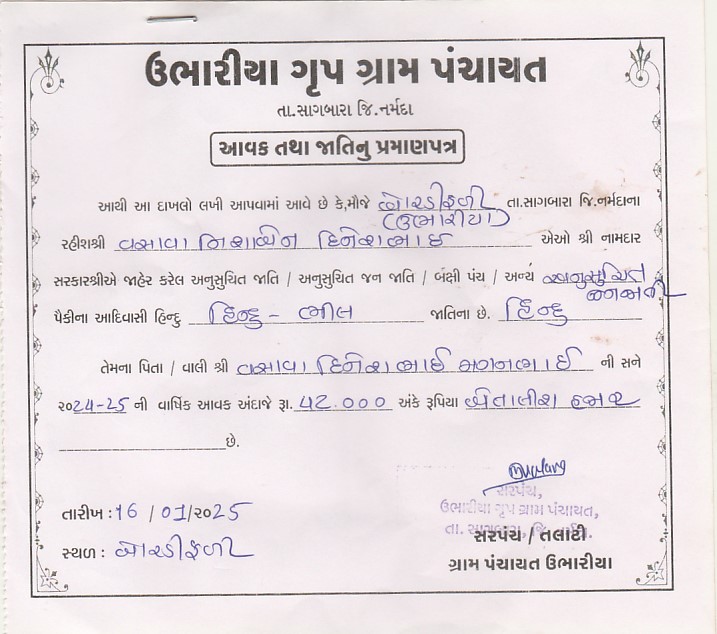 ઉભારીયા ગૃપ ગ્રામ પંચાયત
તા.સાગબારા જિ.નર્મદા
આવક તથા જાતિનુ પ્રમાણપત્ર
આથી આ દાખલો લખી આપવામાં આવે છે કે,મૌજે બોરડીફળી તા.સાગબારા જિ.નર્મદાના
(ઉભારીયા)
રહીશશ્રી વસાવા નિશાબેન દિનેશભાઈ એઓ શ્રી નામદાર
સરકારશ્રીએ જાહેર કરેલ અનુસુચિત જાતિ / અનુસુચિત જન જાતિ / બંક્ષી પંચ / અન્ય અનુસુચિત
જનજાતી
પૈકીના આદિવાસી હિન્દુ હિન્દુ - ભીલ જાતિના છે. હિન્દુ
તેમના પિતા / વાલી શ્રી વસાવા દિનેશભાઈ મગનભાઈ ની સને
૨૦24-25 ની વાર્ષિક આવક અંદાજે રૂા. 42.000 અંકે રૂપિયા બેતાલીશ હજાર
છે.
સરપંચ,
ઉભારીયા ગૃપ ગ્રામ પંચાયત,
તારીખ : 16 / 01 / ૨૦25
તા. સાગબારા, જિ. નર્મદા.
સરપંચ / તલાટી
સ્થળ : બોરડીફળી
ગ્રામ પંચાયત ઉભારીયા